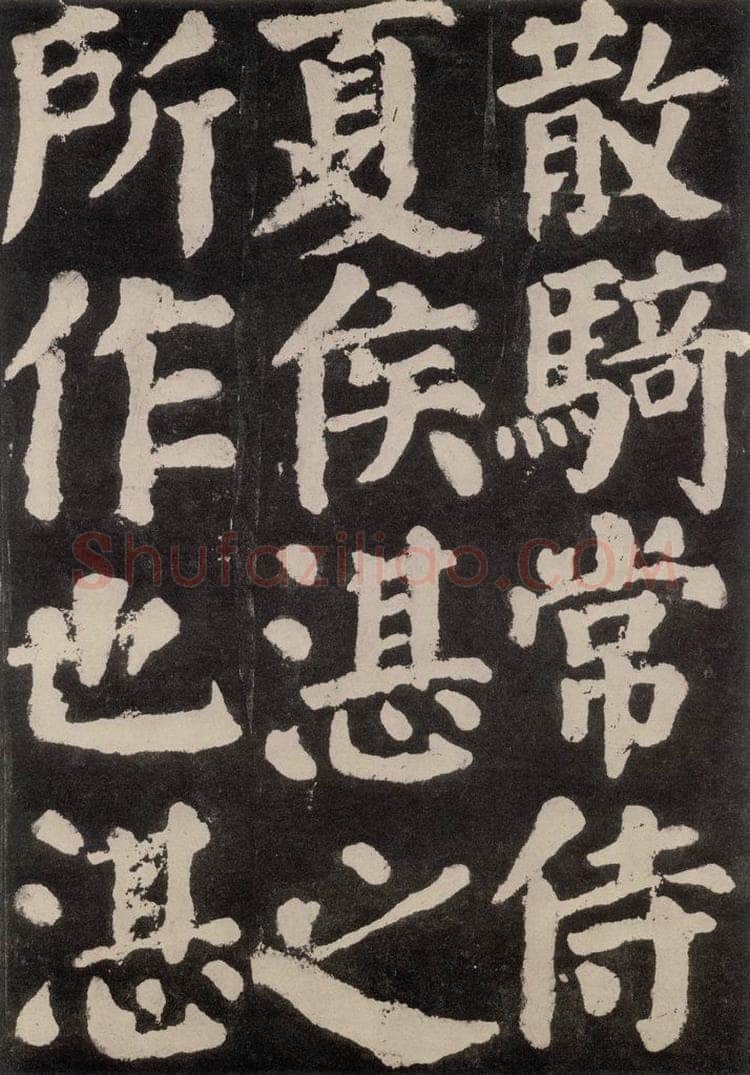 散騎常侍
夏侯湛之
所作也湛
Shufaziliao.COM